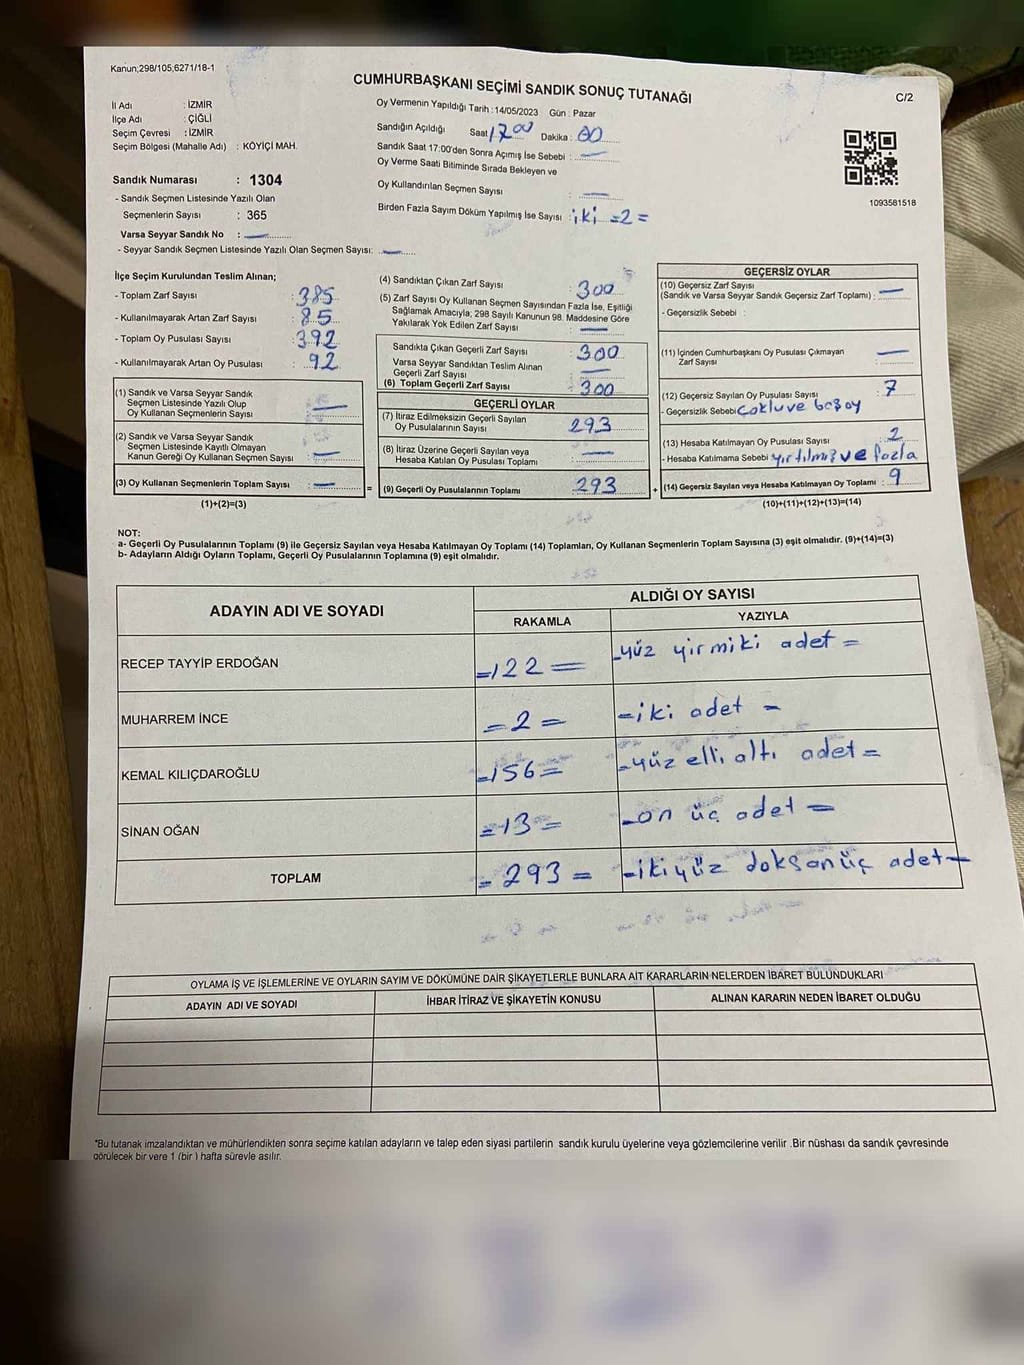 Kanun;298/105;6271/18-1
CUMHURBAŞKANI SEÇİMİ SANDIK SONUÇ TUTANAĞI
C/2
İl Adı : İZMİR
İlçe Adı : ÇİĞLİ
Seçim Çevresi : İZMİR
Seçim Bölgesi (Mahalle Adı) : KÖYİÇİ MAH.
Sandık Numarası : 1304
- Sandık Seçmen Listesinde Yazılı Olan
Seçmenlerin Sayısı : 365
Varsa Seyyar Sandık No : —
- Seyyar Sandık Seçmen Listesinde Yazılı Olan Seçmen Sayısı: —
Oy Vermenin Yapıldığı Tarih : 14/05/2023 Gün : Pazar
Sandığın Açıldığı Saat 17 00 Dakika : 00
Sandık Saat 17:00'den Sonra Açımış İse Sebebi : —
Oy Verme Saati Bitiminde Sırada Bekleyen ve
Oy Kullandırılan Seçmen Sayısı : —
Birden Fazla Sayım Döküm Yapılmış İse Sayısı : iki =2=
1093581518
İlçe Seçim Kurulundan Teslim Alınan;
- Toplam Zarf Sayısı : 385
- Kullanılmayarak Artan Zarf Sayısı : 85
- Toplam Oy Pusulası Sayısı : 392
- Kullanılmayarak Artan Oy Pusulası : 92
(1) Sandık ve Varsa Seyyar Sandık
Seçmen Listesinde Yazılı Olup
Oy Kullanan Seçmenlerin Sayısı : —
(2) Sandık ve Varsa Seyyar Sandık
Seçmen Listesinde Kayıtlı Olmayan
Kanun Gereği Oy Kullanan Seçmen Sayısı : —
(3) Oy Kullanan Seçmenlerin Toplam Sayısı : —
(1)+(2)=(3)
=
(4) Sandıktan Çıkan Zarf Sayısı : 300
(5) Zarf Sayısı Oy Kullanan Seçmen Sayısından Fazla İse, Eşitliği
Sağlamak Amacıyla; 298 Sayılı Kanunun 98. Maddesine Göre
Yakılarak Yok Edilen Zarf Sayısı : —
Sandıkta Çıkan Geçerli Zarf Sayısı : 300
Varsa Seyyar Sandıktan Teslim Alınan
Geçerli Zarf Sayısı : —
(6) Toplam Geçerli Zarf Sayısı : 300
GEÇERLİ OYLAR
(7) İtiraz Edilmeksizin Geçerli Sayılan
Oy Pusulalarının Sayısı : 293
(8) İtiraz Üzerine Geçerli Sayılan veya
Hesaba Katılan Oy Pusulası Toplamı : —
(9) Geçerli Oy Pusulalarının Toplamı : 293
+
GEÇERSİZ OYLAR
(10) Geçersiz Zarf Sayısı
(Sandık ve Varsa Seyyar Sandık Geçersiz Zarf Toplamı) : —
- Geçersizlik Sebebi :
(11) İçinden Cumhurbaşkanı Oy Pusulası Çıkmayan
Zarf Sayısı : —
(12) Geçersiz Sayılan Oy Pusulası Sayısı : 7
- Geçersizlik Sebebi çoklu ve boş oy
(13) Hesaba Katılmayan Oy Pusulası Sayısı : 2
- Hesaba Katılmama Sebebi yırtılmış ve fazla
(14) Geçersiz Sayılan veya Hesaba Katılmayan Oy Toplamı : 9
(10)+(11)+(12)+(13)=(14)
NOT:
a- Geçerli Oy Pusulalarının Toplamı (9) ile Geçersiz Sayılan veya Hesaba Katılmayan Oy Toplamı (14) Toplamları, Oy Kullanan Seçmenlerin Toplam Sayısına (3) eşit olmalıdır. (9)+(14)=(3)
b- Adayların Aldığı Oyların Toplamı, Geçerli Oy Pusulalarının Toplamına (9) eşit olmalıdır.
ADAYIN ADI VE SOYADI ALDIĞI OY SAYISI
RAKAMLA YAZIYLA
RECEP TAYYİP ERDOĞAN =122= -yüz yirmiki adet=
MUHARREM İNCE =2= -iki adet -
KEMAL KILIÇDAROĞLU =156= -yüz elli altı adet=
SİNAN OĞAN =13= -on üç adet -
TOPLAM =293= -ikiyüz doksanüç adet-
OYLAMA İŞ VE İŞLEMLERİNE VE OYLARIN SAYIM VE DÖKÜMÜNE DAİR ŞİKAYETLERLE BUNLARA AİT KARARLARIN NELERDEN İBARET BULUNDUKLARI
ADAYIN ADI VE SOYADI İHBAR İTİRAZ VE ŞİKAYETİN KONUSU ALINAN KARARIN NEDEN İBARET OLDUĞU
*Bu tutanak imzalandıktan ve mühürlendikten sonra seçime katılan adayların ve talep eden siyasi partilerin sandık kurulu üyelerine veya gözlemcilerine verilir .Bir nüshası da sandık çevresinde
görülecek bir yere 1 (bir ) hafta süreyle asılır.